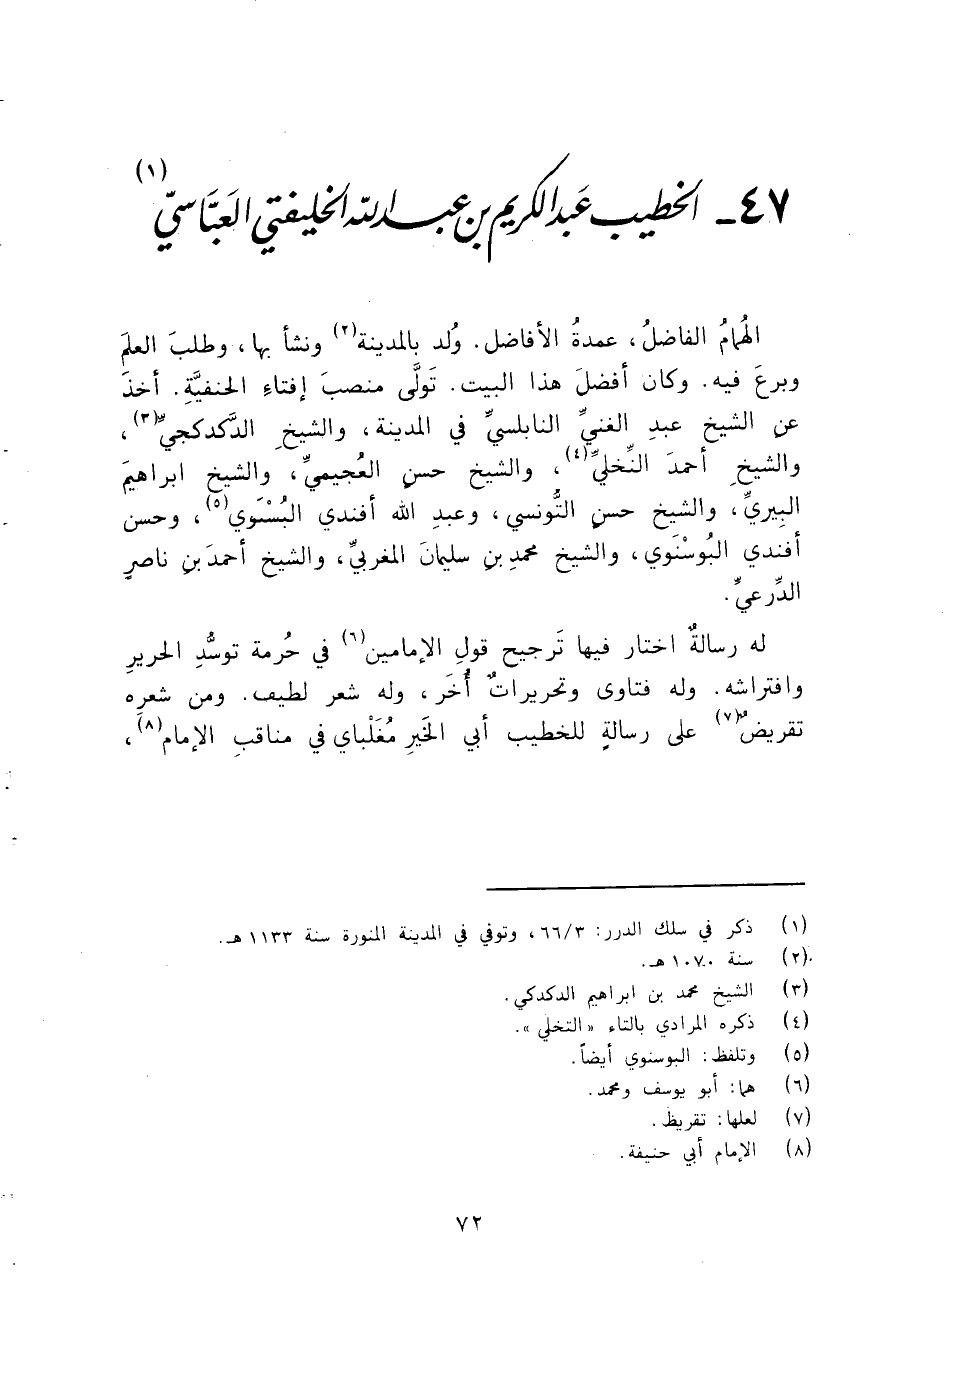 ٤٧ـ الخطيب عَبد الكريم بن عبد الله الخليفتي العَبَّاسيّ (١)
الهُمامُ الفاضلُ، عمدةُ الأفاضل. وُلد بالمدينة(٢) ونشأ بها، وطلبَ العلمَ
وبرعَ فيه. وكان أفضلَ هذا البيت. تَولَّى منصبَ إفتاءِ الحنفيَّةِ. أخذَ
عنِ الشيخ عبدِ الغنيِّ النابلسيِّ في المدينة، والشيخِ الدَّكدكجيِّ(٣)،
والشيخِ أحمدَ النِّخليِّ(٤)، والشيخ حسنٍ العُجيميِّ، والشيخ ابراهيمَ
البِيريِّ، والشيخ حسنٍ التُّونسي، وعبدِ الله أفندي البُسْنَوي(٥)، وحسن
أفندي البُوسْنَوي، والشيخ محمدِ بنِ سليمانَ المغربيِّ، والشيخ أحمدَ بنِ ناصرٍ
الدِّرعيِّ.
له رسالةٌ اختار فيها تَرجيح قولِ الإمامين(٦) في حُرمة توسُّدِ الحريرِ
وافتراشه. وله فتاوى وتحريراتٌ أُخَر، وله شعر لطيف. ومن شعره
تقريضٌ(٧) على رسالةٍ للخطيب أبي الخَيرِ مُغَلْباي في مناقبِ الإمام(٨)،
(١) ذكر في سلك الدرر: ٦٦/٣، وتوفي في المدينة المنورة سنة ١١٣٣ هـ.
(٢) سنة ١٠٧٠ هـ.
(٣) الشيخ محمد بن ابراهيم الدكدكي.
(٤) ذكره المرادي بالتاء «التخلي».
(٥) وتلفظ: البوسنوي أيضاً.
(٦) هما: أبو يوسف ومحمد.
(٧) لعلها: تقريظ.
(٨) الإمام أبي حنيفة.
٧٢